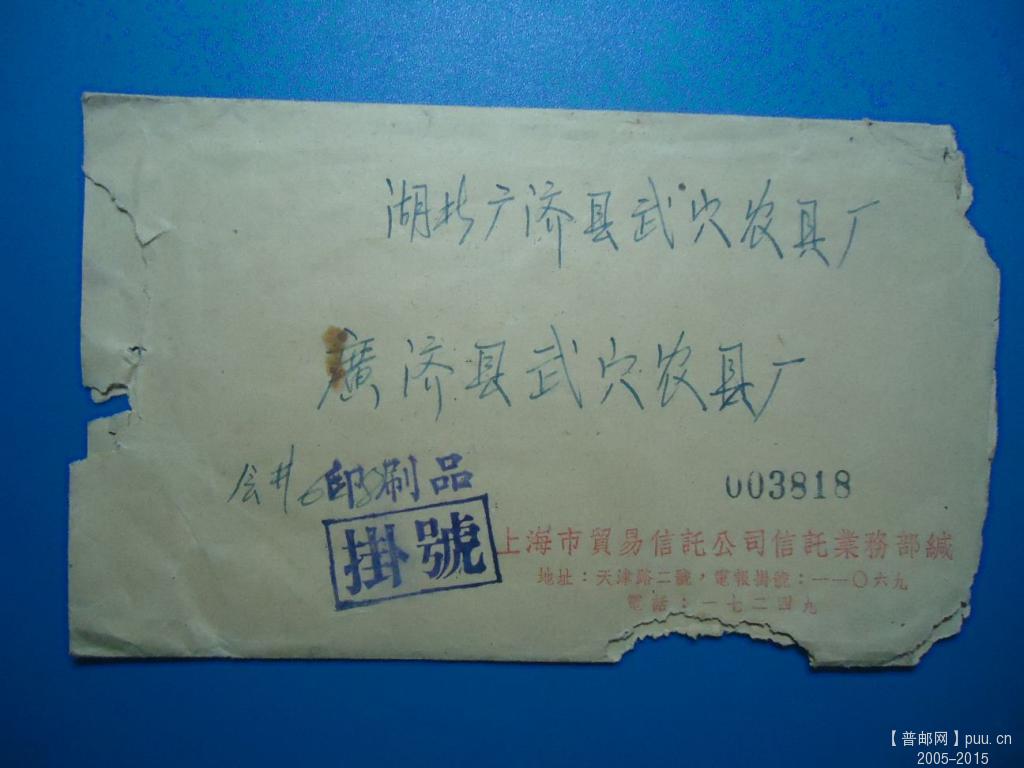 湖北广济县武穴农具厂
廣济县武穴农具厂
印刷品
掛號
003818
上海市貿易信託公司信託業務部緘
地址：天津路二號，電報掛號：一一〇六九
電話：一七二四九
【普邮网】puu.cn
2005-2015